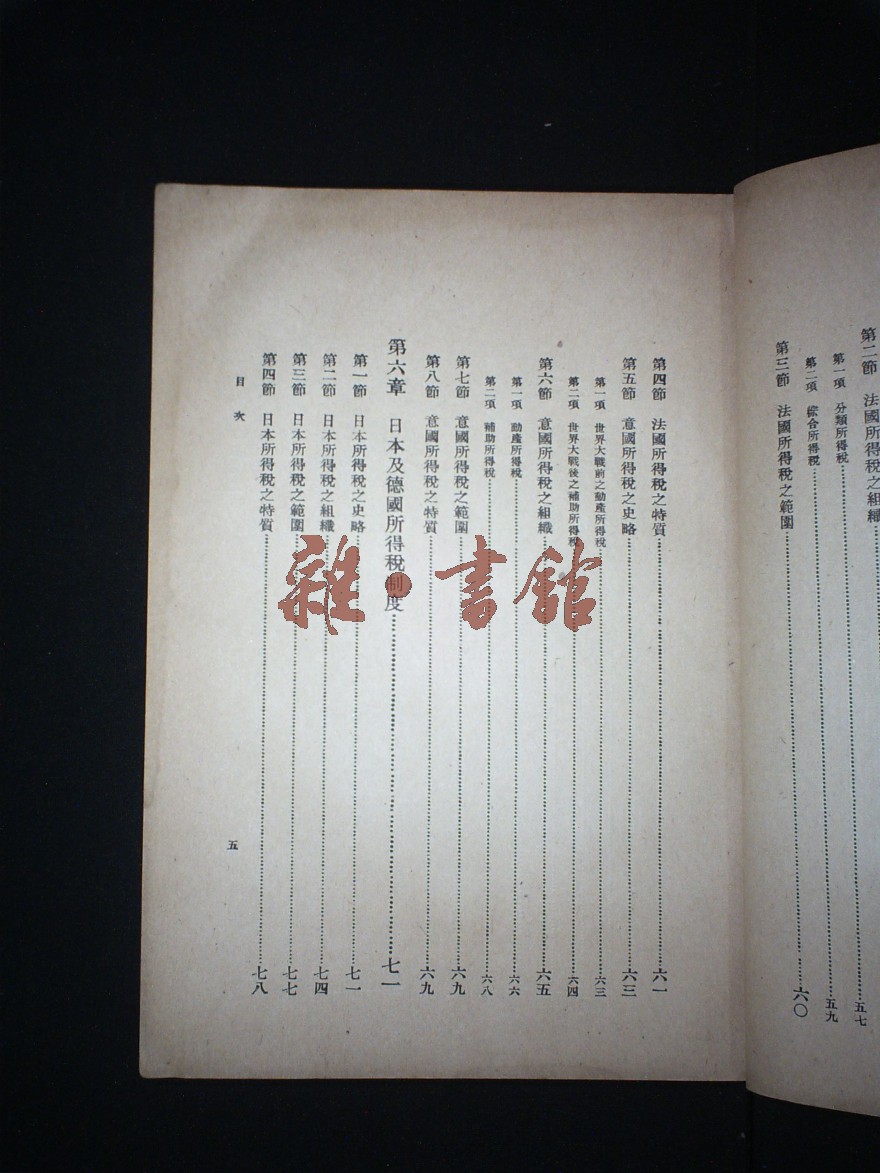 第二節　法國所得稅之組織
第一項　分類所得稅……五七
第二項　綜合所得稅……五九
第三節　法國所得稅之範圍……六〇
第四節　法國所得稅之特質……六一
第五節　意國所得稅之史略……六三
第一項　世界大戰前之動產所得稅……六三
第二項　世界大戰後之補助所得稅……六四
第六節　意國所得稅之組織……六五
第一項　動產所得稅……六六
第二項　補助所得稅……六八
第七節　意國所得稅之範圍……六九
第八節　意國所得稅之特質……六九
第六章　日本及德國所得稅制度……七一
第一節　日本所得稅之史略……七一
第二節　日本所得稅之組織……七四
第三節　日本所得稅之範圍……七七
第四節　日本所得稅之特質……七八
目次
五
雜·書館